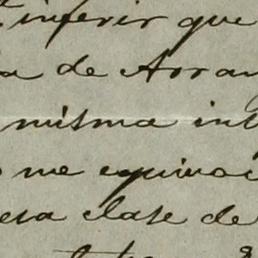 inferir que
a de Arran
misma int
me equivoc
esa clase de